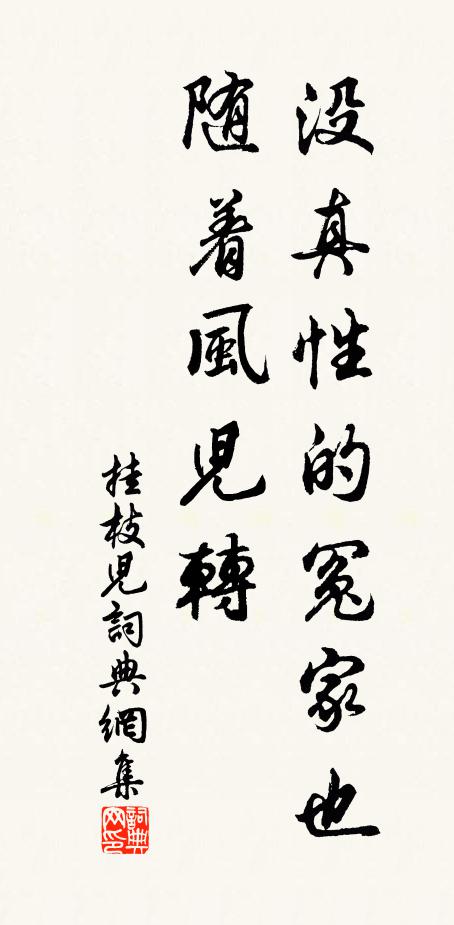 没真性的冤家也
随着風兒轉
挂枝兒詞典網集
詞典網印